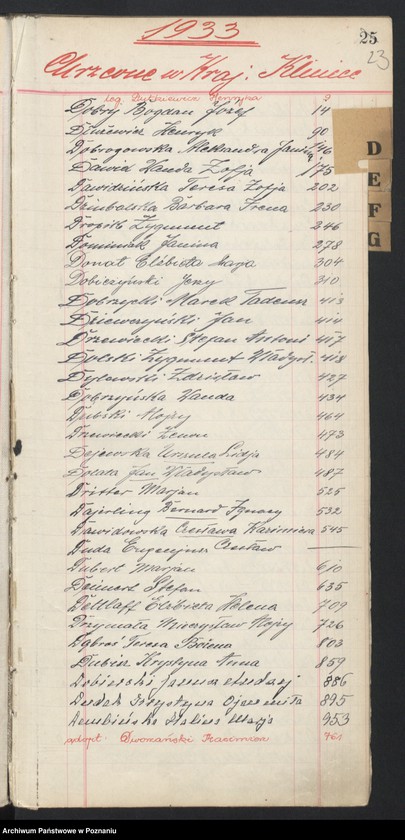 1933
25
23
Chrzcone w Kraj. Klinice
leg. Dutkiewicz Henryka 9
Dobry Bogdan Józef 14
Henryk 90
Dobrogowska Aleksandra Janina 146
Dawid Wanda Zofja 175
Dawidzińska Teresa Zofja 202
Barbara Irena 230
Zygmunt 246
Dominiak Janina 278
Donat Elżbieta 304
Dobiczyński Jerzy 310
Dobrzycki Marek Tadeusz 413
Dziewczyński Jan 414
Drzewiecki Stefan Antoni 417
Dolski Zygmunt Władysł. 418
Dylewski Zdzisław 427
Dobrzyńska Wanda 434
Dubski 464
Drzewiecki Zenon 473
Dajewska Urszula Lidja 484
Dolata Jan Władysław 487
Dritter Marjan 525
Dajerling Bernard Ignacy 532
Dawidowska Czesława Kazimiera 545
Duda Eugenjusz Czesław
Dubert Marjan 610
Deinert Stefan 635
Dettlaff Elżbieta Helena 709
Drzymała Mieczysław 726
Dąbroś Teresa Bożena 803
Dubisz Krystyna Anna 859
886
Dudek Krystyna 895
953
adopt. Dworzański Kazimierz 761
D
E
F
G
Archiwum Państwowe w Poznaniu